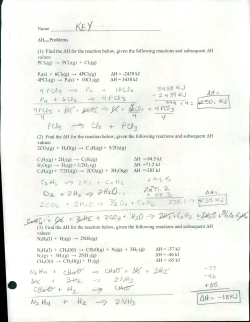 Name KEY
ΔHrxn Problems
(1) Find the ΔH for the reaction below, given the following reactions and subsequent ΔH
values:
PCl5(g) → PCl3(g) + Cl2(g)
P4(s) + 6Cl2(g) → 4PCl3(g) ΔH = -2439 kJ
4PCl5(g) → P4(s) + 10Cl2(g) ΔH = 3438 kJ
4PCl5 → P4 + 10Cl2 3438 KJ
P4 + 6Cl2 → 4PCl3 -2439 KJ
ΔH =
250. KJ
PCl5 → Cl2 + PCl3
(2) Find the ΔH for the reaction below, given the following reactions and subsequent ΔH
values:
2CO2(g) + H2O(g) → C2H2(g) + 5/2O2(g)
C2H2(g) + 2H2(g) → C2H6(g) ΔH = -94.5 kJ
H2O(g) → H2(g) + 1/2O2(g) ΔH = 71.2 kJ
C2H6(g) + 7/2O2(g) → 2CO2(g) + 3H2O(g) ΔH = -283 kJ
C2H6 → 2H2 + C2H2
ΔH =
(3) Find the ΔH for the reaction below, given the following reactions and subsequent ΔH
values:
N2H4(l) + H2(g) → 2NH3(g)
N2H4(l) + CH4O(l) → CH2O(g) + N2(g) + 3H2(g) ΔH = -37 kJ
N2(g) + 3H2(g) → 2NH3(g) ΔH = -46 kJ
CH4O(l) → CH2O(g) + H2(g) ΔH = -65 kJ
N2H4 + CH4O → CH2O + N2 + 3H2 -37
N2 + 3H2 → 2NH3 -46
CH2O + H2 → CH4O +65
N2H4 + H2 → 2NH3 ΔH = -18KJ